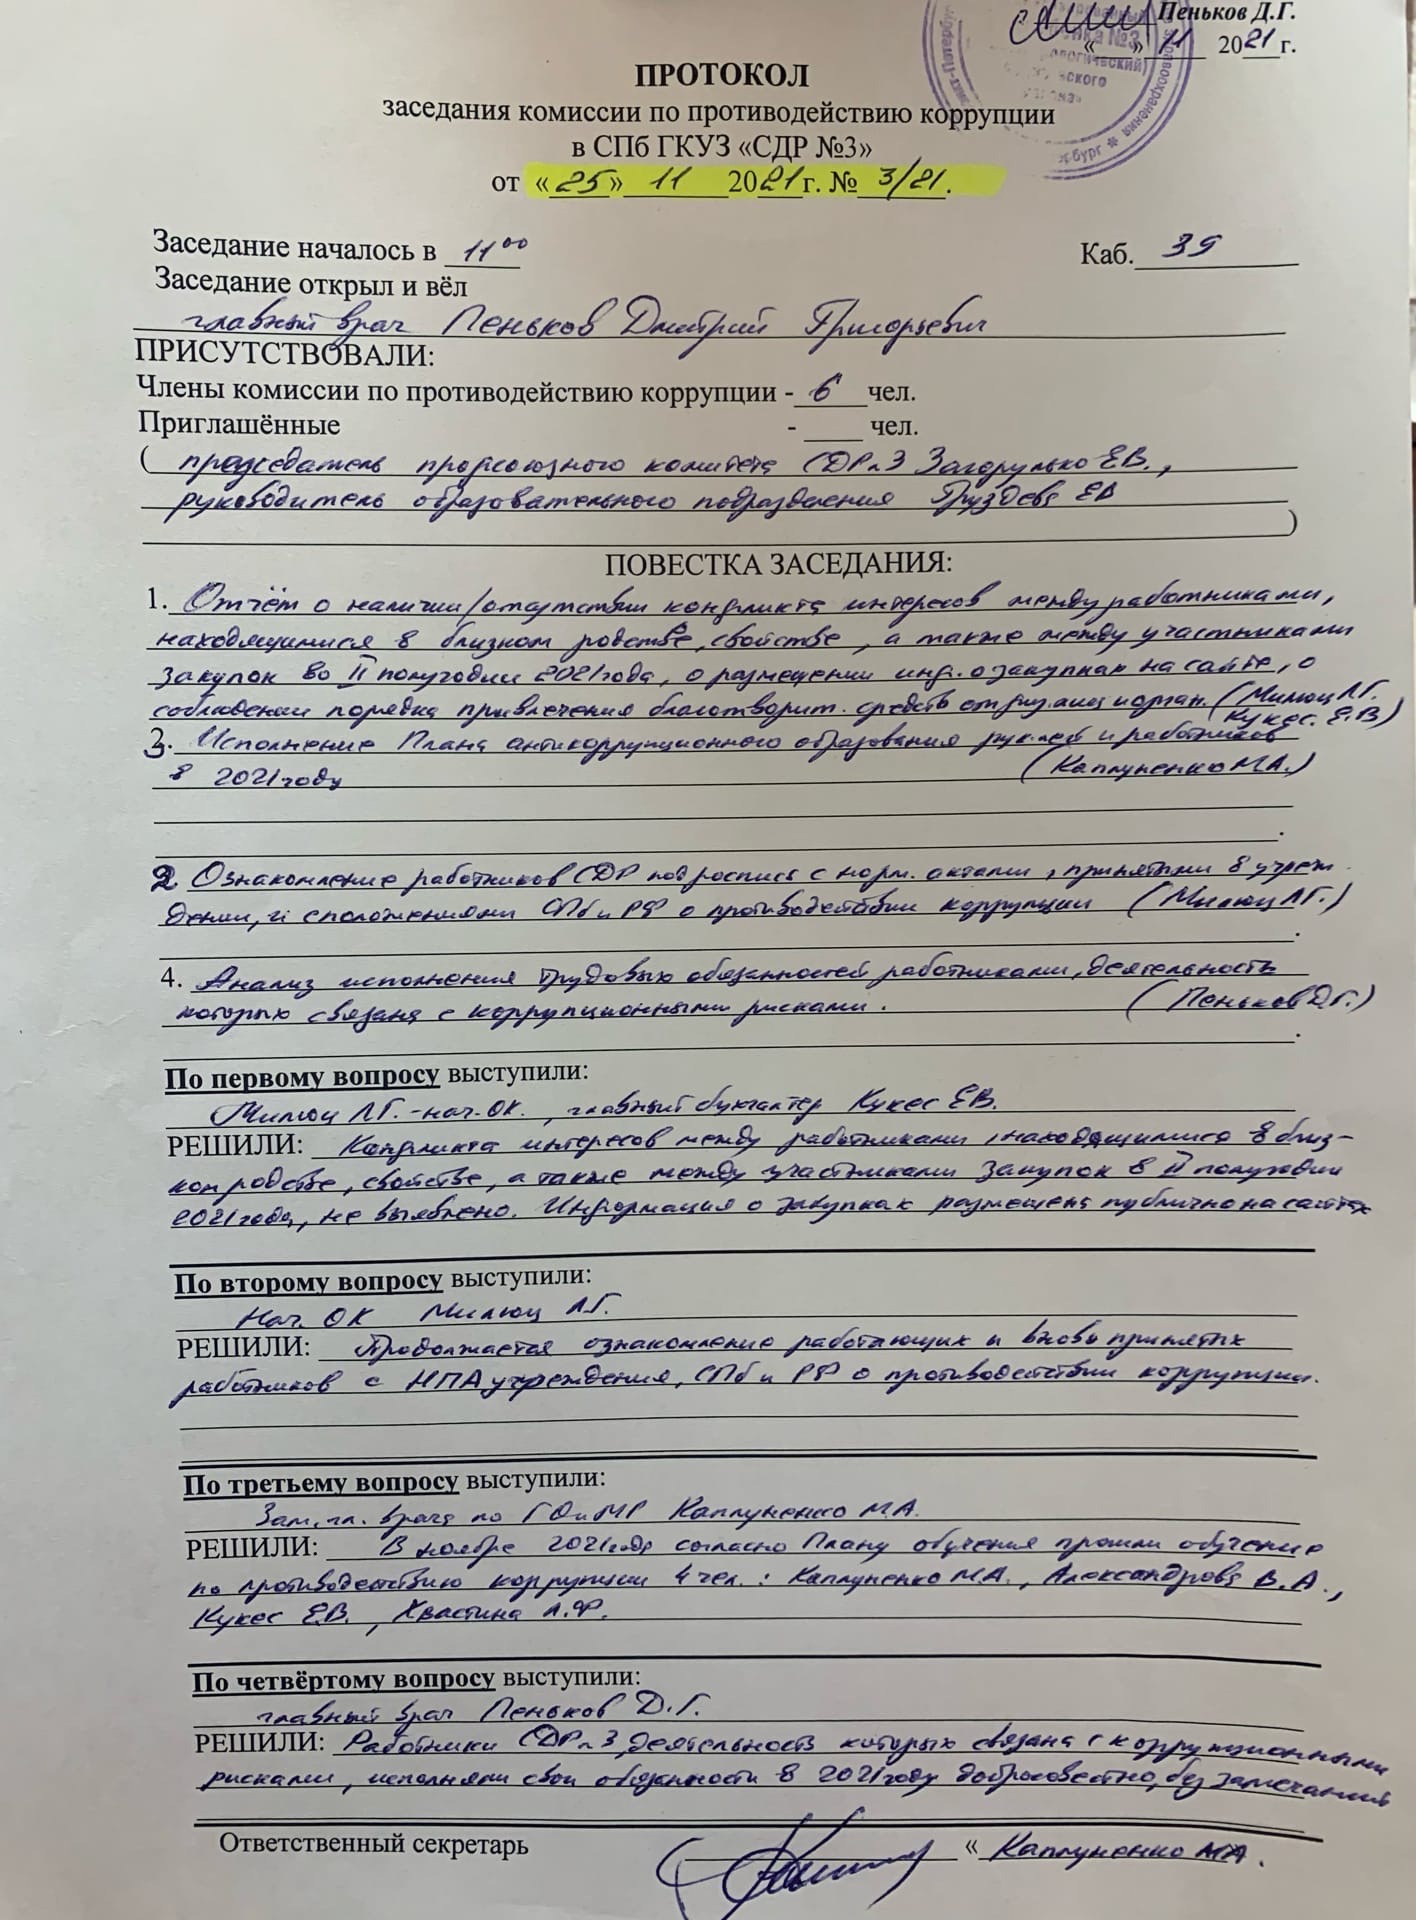 Пеньков Д.Г.
«__» 11 2021 г.
ПРОТОКОЛ
заседания комиссии по противодействию коррупции
в СПб ГКУЗ «СДР №3»
от «25» 11 2021 г. № 3/21.
Заседание началось в 11⁰⁰ Каб. 39
Заседание открыл и вёл
главный врач Пеньков Дмитрий Григорьевич
ПРИСУТСТВОВАЛИ:
Члены комиссии по противодействию коррупции - 6 чел.
Приглашённые - ____ чел.
( председатель профсоюзного комитета СДР №3 Загорулько Е.В.,
руководитель образовательного подразделения Груздева ЕВ
)
ПОВЕСТКА ЗАСЕДАНИЯ:
1. Отчёт о наличии/отсутствии конфликта интересов между работниками,
находящимися в близком родстве, свойстве, а также между участниками
закупок во II полугодии 2021 года, о размещении инф. о закупках на сайте, о
соблюдении порядка привлечения благотворит. средств от физ. лиц и орган. (Милюц Л.Г.
Кукес. Е.В)
3. Исполнение Плана антикоррупционного образования рук-лей и работников
в 2021 году (Каплуненко М.А.)
2 Ознакомление работников СДР под роспись с норм. актами, принятыми в учреж
дении, и с положениями СПб и РФ о противодействии коррупции (Милюц Л.Г.)
4. Анализ исполнения трудовых обязанностей работниками, деятельность
которых связана с коррупционными рисками. (Пеньков Д.Г.)
По первому вопросу выступили:
Милюц Л.Г. - нач. ОК., главный бухгалтер Кукес Е.В.
РЕШИЛИ: Конфликта интересов между работниками, находящимися в близ-
ком родстве, свойстве, а также между участниками закупок в II полугодии
2021 года, не выявлено. Информация о закупках размещена публично на сайтах
По второму вопросу выступили:
Нач. ОК Милюц Л.Г.
РЕШИЛИ: Продолжается ознакомление работающих и вновь принятых
работников с НПА учреждения, СПб и РФ о противодействии коррупции.
По третьему вопросу выступили:
Зам. гл. врача по ГО и МР Каплуненко М.А.
РЕШИЛИ: В ноябре 2021 года согласно Плану обучения прошли обучение
по противодействию коррупции 4 чел.: Каплуненко М.А., Александрова В.А.,
Кукес Е.В., Хвастина Л.Ф.
По четвёртому вопросу выступили:
главный врач Пеньков Д.Г.
РЕШИЛИ: Работники СДР №3, деятельность которых связана с коррупционными
рисками, исполняли свои обязанности в 2021 году добросовестно, без замечаний
Ответственный секретарь « Каплуненко МА.